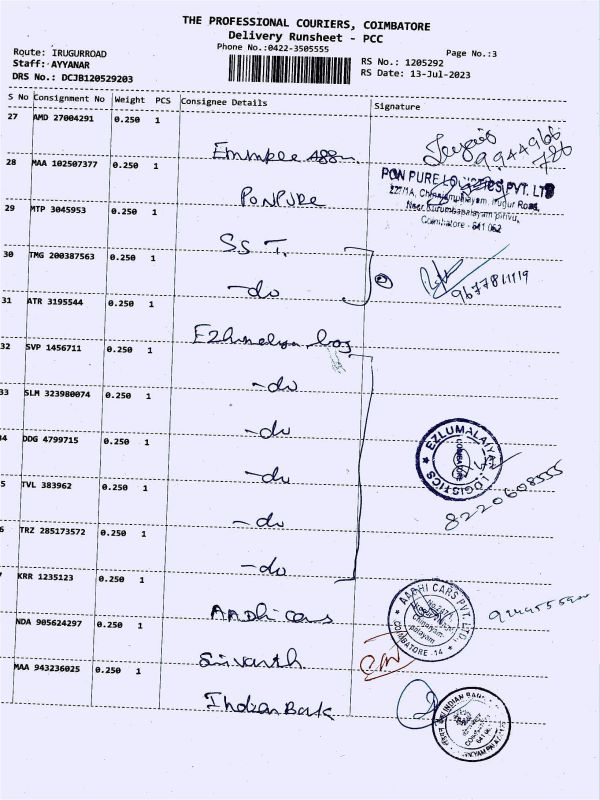 THE PROFESSIONAL COURIERS, COIMBATORE
Delivery Runsheet - PCC
Phone No.:0422-3505555
Page No.:3
Route: IRUGURROAD
Staff: AYYANAR
DRS No.: DCJB120529203
RS No.: 1205292
RS Date: 13-Jul-2023
S No Consignment No Weight PCS Consignee Details Signature
27 AMD 27004291 0.250 1
9944966
726
28 MAA 102507377 0.250 1 PONPURE
PON PURE LOGISTICS PVT. LTD
Irugur Road,
Coimbatore - 641 062
29 MTP 3045953 0.250 1 SS T.
30 TMG 200387563 0.250 1 -do
9677811119
31 ATR 3195544 0.250 1
32 SVP 1456711 0.250 1 -do
33 SLM 323980074 0.250 1 -do
34 DDG 4799715 0.250 1 -do
EZLUMALAIYAN
COIMBATORE
LOGISTICS
8220608555
5 TVL 383962 0.250 1 -do
6 TRZ 285173572 0.250 1 -do
7 KRR 1235123 0.250 1 AAdhi cars
AADHI CARS PVT. LTD.,
COIMBATORE - 14
NDA 905624297 0.250 1
MAA 943236025 0.250 1 Indian Bank
INDIAN BANK